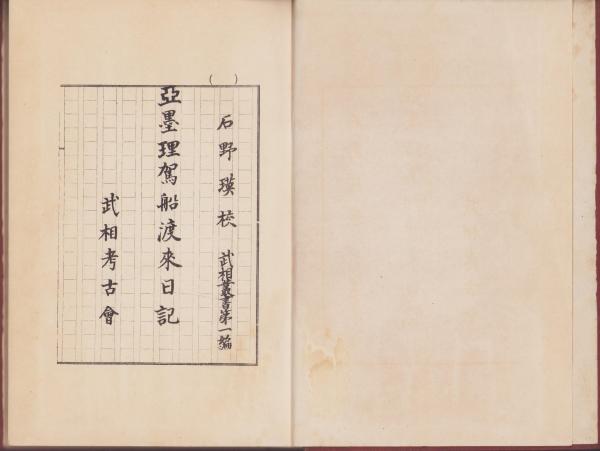 石野瑛校 武相叢書第一編
亞墨理駕船渡來日記
武相考古會